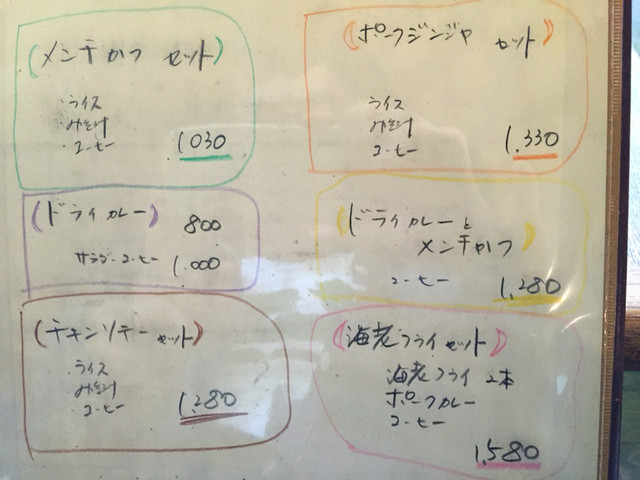 (メンチかつ セット)
・ライス
・みそ汁
・コーヒー
1030
(ポークジンジャ セット)
ライス
みそ汁
コーヒー
1.330
(ドライカレー) 800
サラダ・コーヒー 1.000
(ドライカレーと
メンチかつ)
コーヒー 1.280
(チキンソテーセット)
・ライス
・みそ汁
・コーヒー
1.280
(海老フライセット)
海老フライ 2本
ポークカレー
コーヒー
1.580